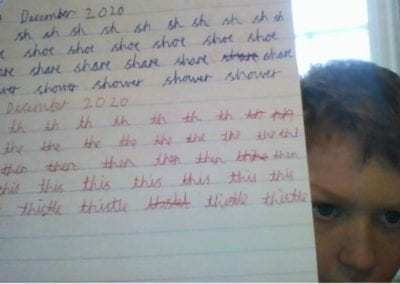 December 2020
sh sh sh sh sh sh sh sh sh
shoe shoe shoe shoe shoe shoe
share share share share share share
shower shower shower shower
December 2020
th th th th th th th
the the the the the the the the the
then then then then then then
this this this this this this this
thistle thistle thistle thistle